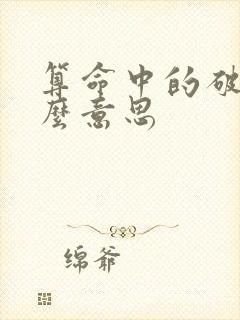 算命中的破
么意思
绵爷